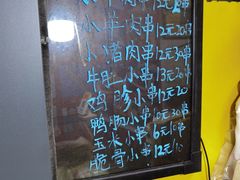 小牛肉串12元20串
小猪肉串12元30串
牛肚小串13元20串
鸡胗小串12元20
鸭肠小串6元30串
玉米小串6元1串
脆骨小串12元1